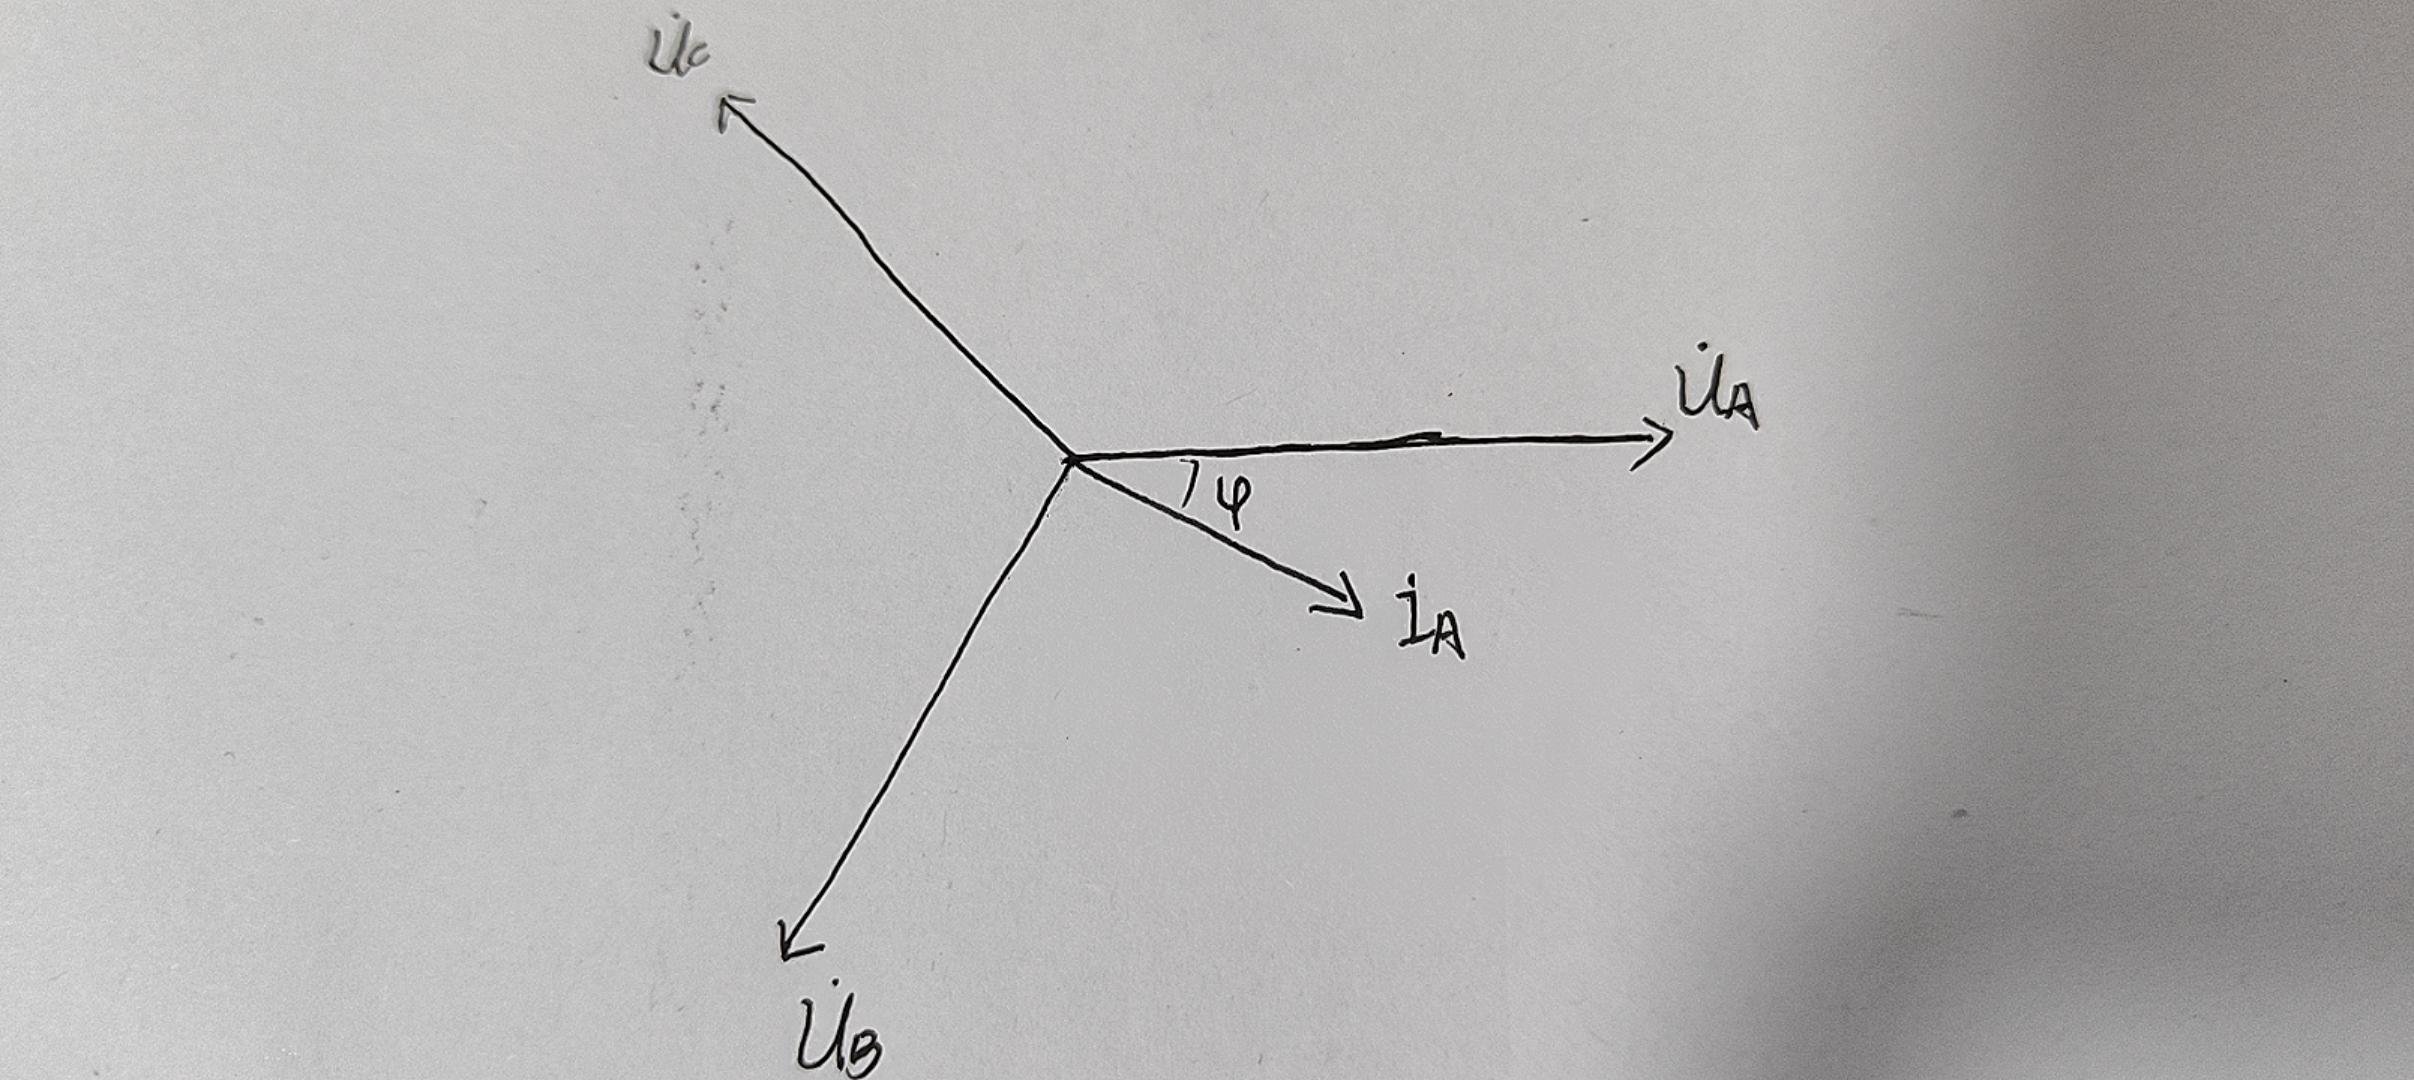 U̇c
U̇A
φ
İA
U̇B